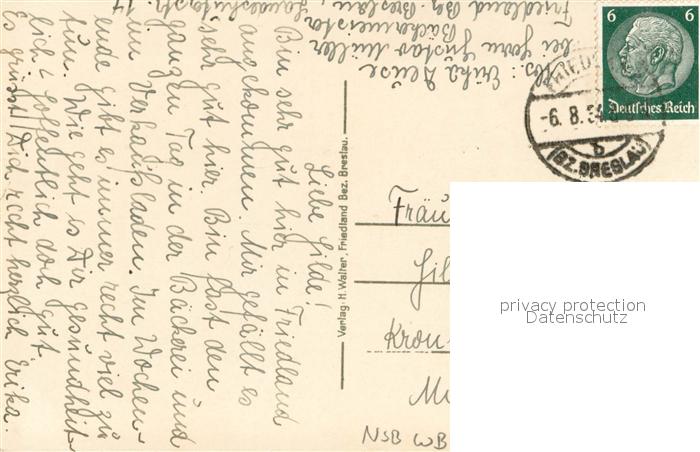 Abs.: Erika
bei Herrn Gustav Müller
Bäckermeister
Friedland Bez. Breslau,
Landeshuterstr. 17
6 6
Deutsches Reich
FRIED
-6.8.34
b
(BZ. BRESLAU)
Liebe Hilde!
Bin sehr gut hier in Friedland
angekommen. Mir gefällt es
sehr gut hier. Bin fast den
ganzen Tag in der Bäckerei und
im Verkaufsladen. Im Wochen-
ende gibt es immer recht viel zu
tun. Wie geht es Dir gesundheit-
lich, hoffentlich doch gut.
Es grüsst Dich recht herzlich Erika.
Verlag: H. Walter, Friedland Bez. Breslau.
Fräu
Hil
Kron
Mü
NSB WB
privacy protection
Datenschutz